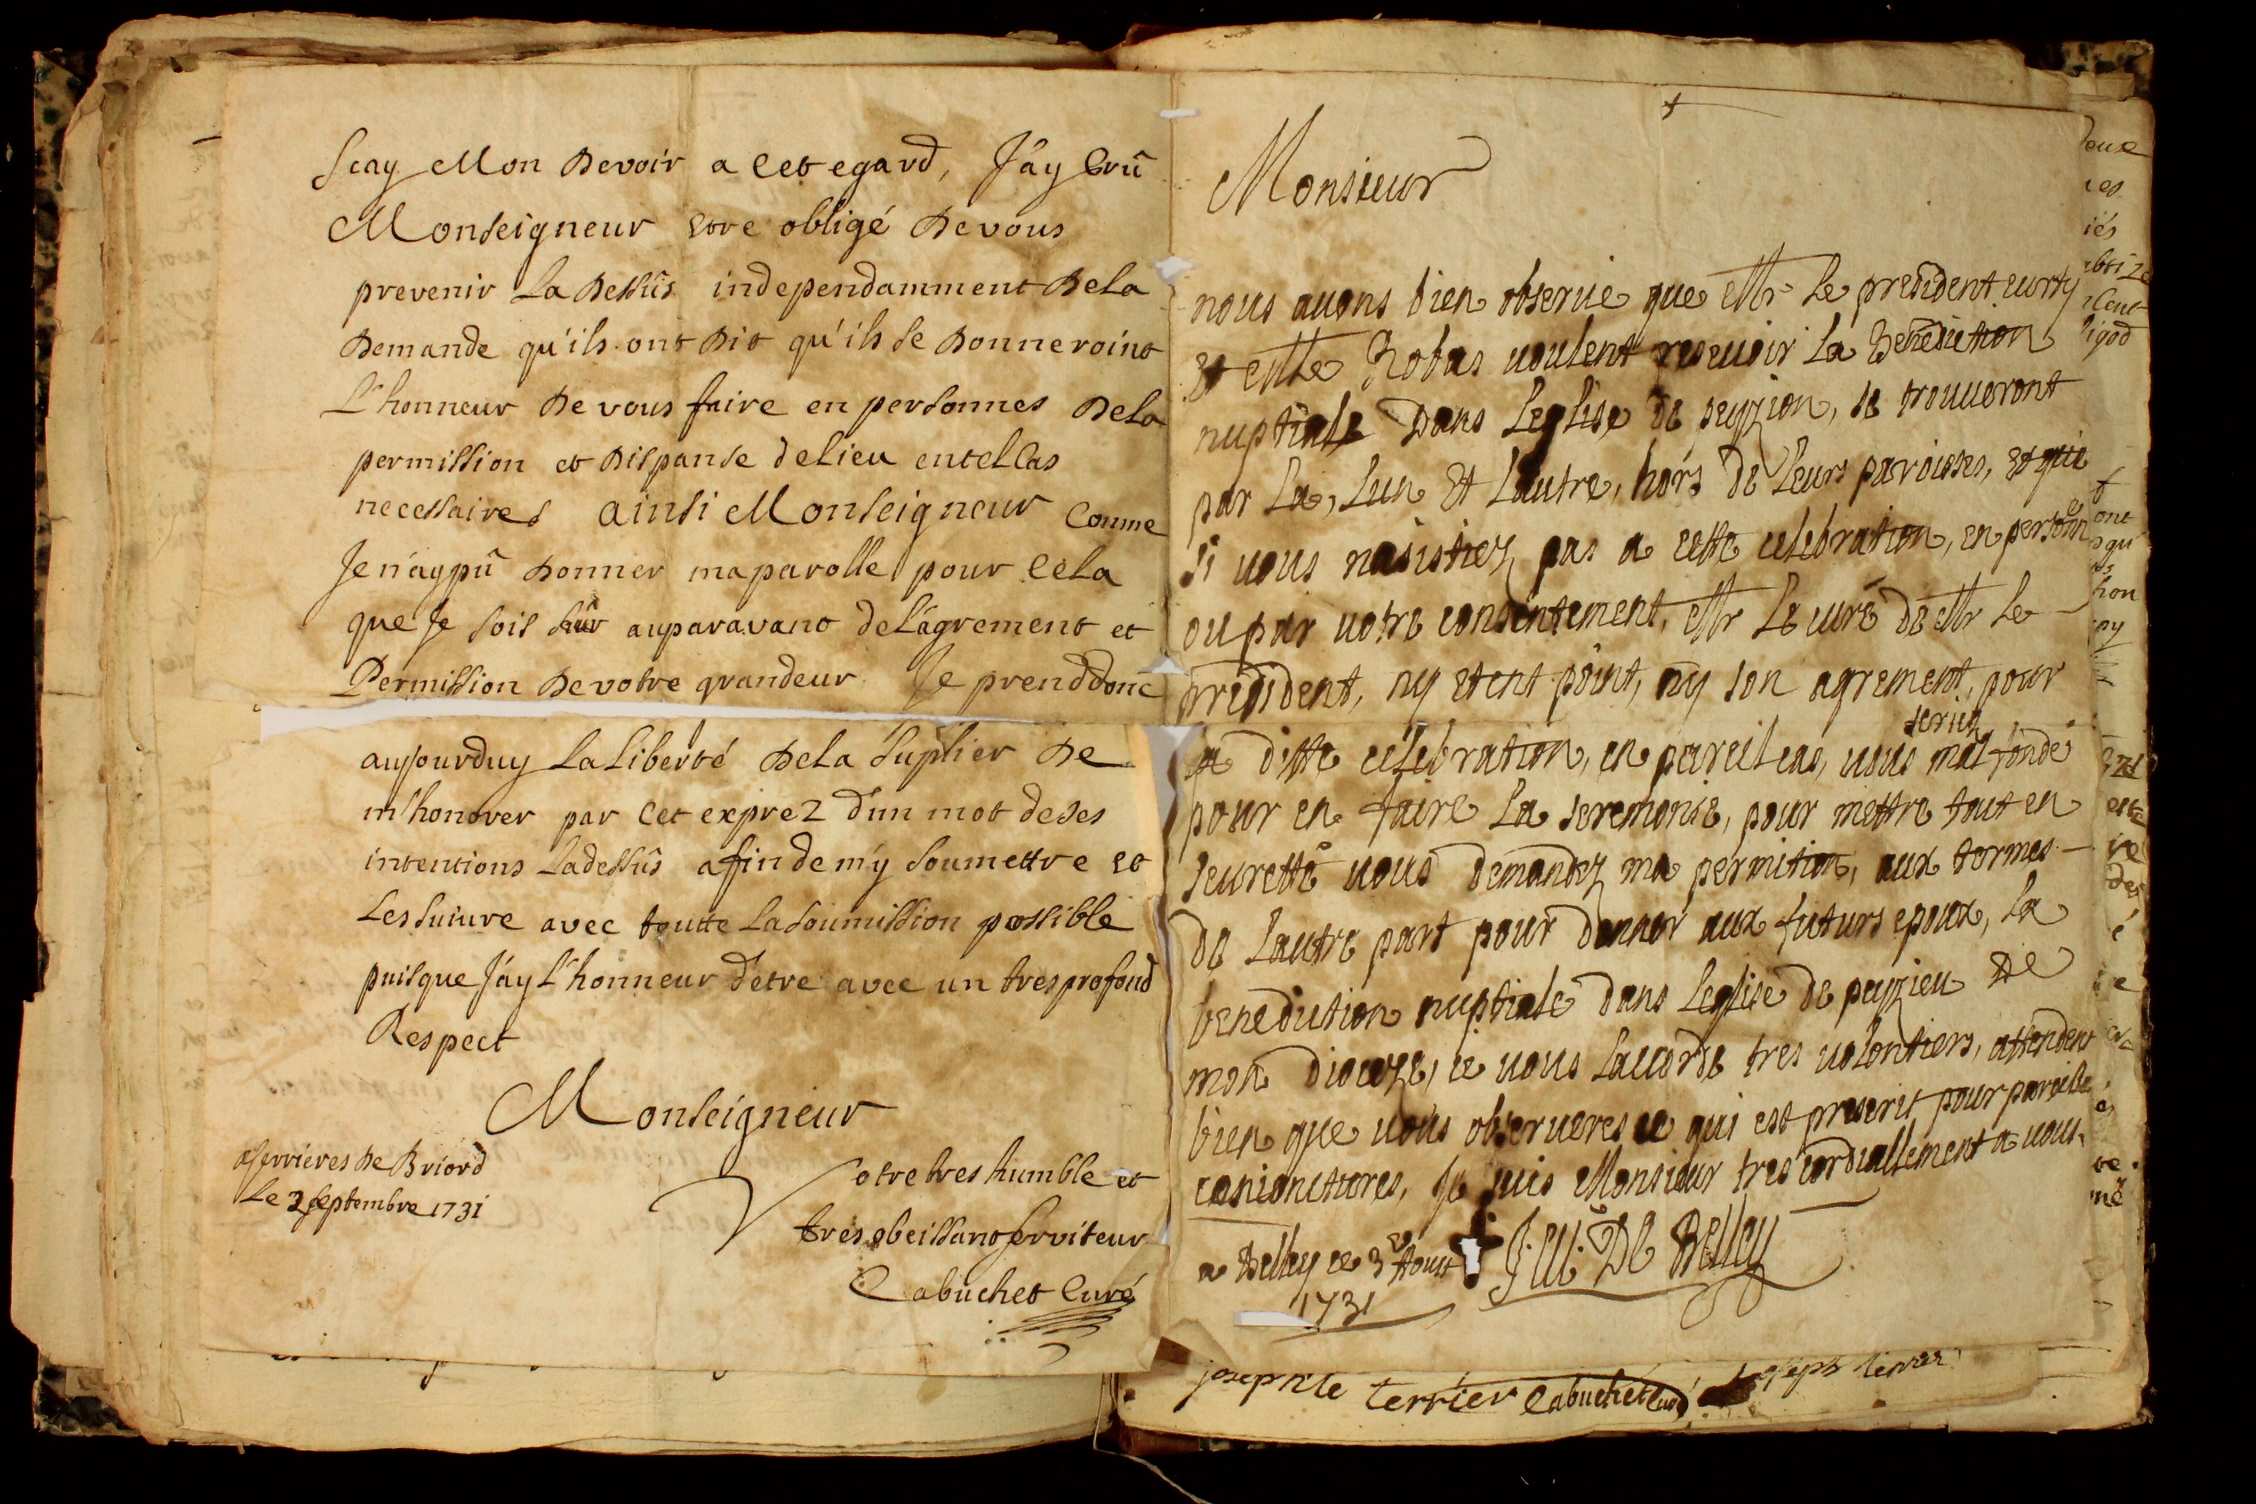 Scay Mon Devoir a Cet egard, J'ay Crû
Monseigneur etre obligé De vous
prevenir La Dessûs independamment De La
Demande qu'ils ont Dit qu'ils se Donneroint
L'honneur De vous faire en personnes De La
permission et Dispanse de lieu en tel Cas
necessaires ainsi Monseigneur Comme
Je n'ay pû Donner ma parolle pour Cela
que Je sois sûr auparavant de L'agrement et
Permission De votre grandeur Je prend donc
aujourduy La Liberté De La suplier De
m'honorer par Cet exprez d'un mot de ses
intentions La dessûs afin de m'y soumettre et
Les suivre avec toutte La soumission possible
puisque J'ay L'honneur d'etre avec un tres profond
Respect
Monseigneur
a serrieres De Briord
Le 2 septembre 1731
Votre tres humble et
tres obeissant serviteur
Cabuchet Curé
Monsieur
nous auons bien obserué que Mr Le president
Et Mlle Robas uoulent reseuoir La Benediction
nuptiale Dans Leglise de peyzieu, se trouueront
par La, Lun Et Lautre, hors de Leurs paroisses, et que
si uous nasistiez pas a cette celebration, en personne
ou par uotre consentement, Mr Le curé de Mr Le
president, ny etent point, ny son agrement, pour
La ditte celebration, en pareil cas, uous seriez mal fondé
pour en faire La seremonie, pour mettre tout en
seuretté uous demandez ma permition, aux termes
de Lautre part pour donner aux futurs epoux, La
benediction nuptiale dans Leglise de peyzieu De
mon dioceze, ie uous Laccorde tres uolontiers, attendent
bien que uous obserueres ce qui est prescrit pour pareille
conionctures, Je suis Monsieur tres cordiallement a uous,
a Belley ce 3e Aoust
1731
† J. M. De Belley
josephte terrier Cabuchet Curé joseph terrier